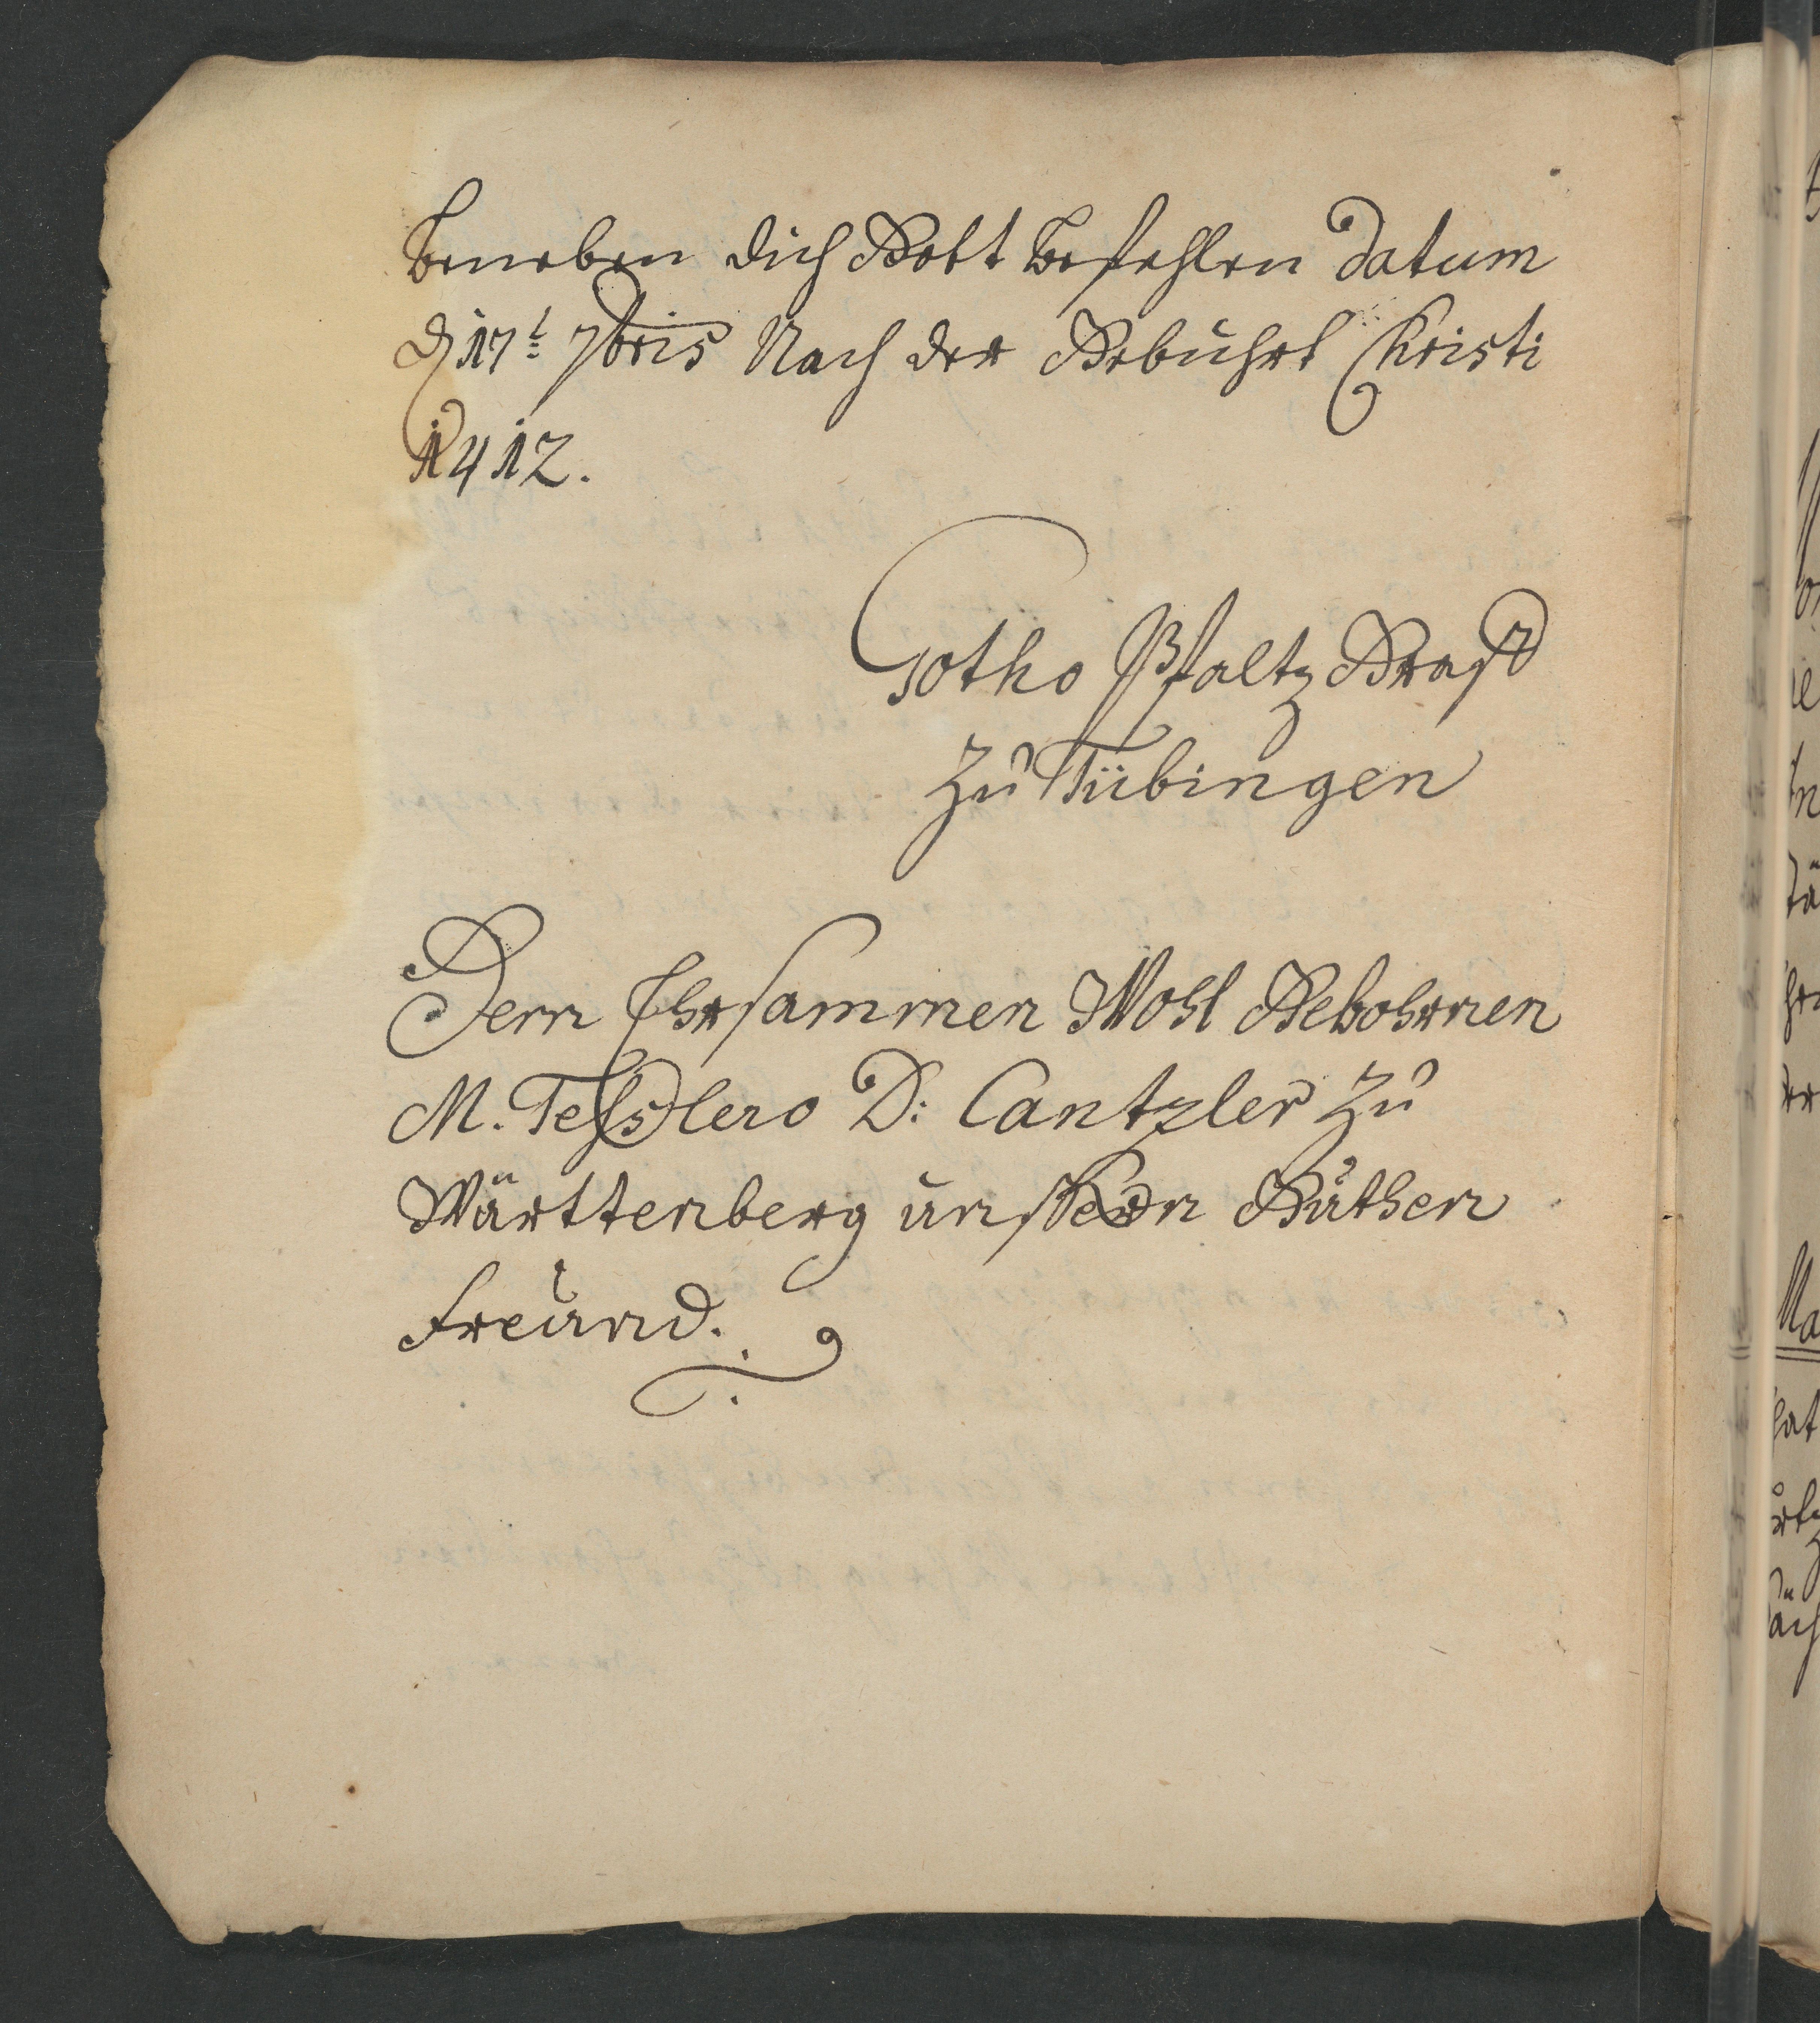 beneben dich Gott befehlen Datum
d 17t 7bris Nach der Gebuhrt Christi
1412.
Gotho Pfaltz Graf
zu Tübingen
Dem Ehrsammen Wohl Gebohrnen
M. Tesslero D: Cantzler zu
Württenberg unsern Guthen
Freund.